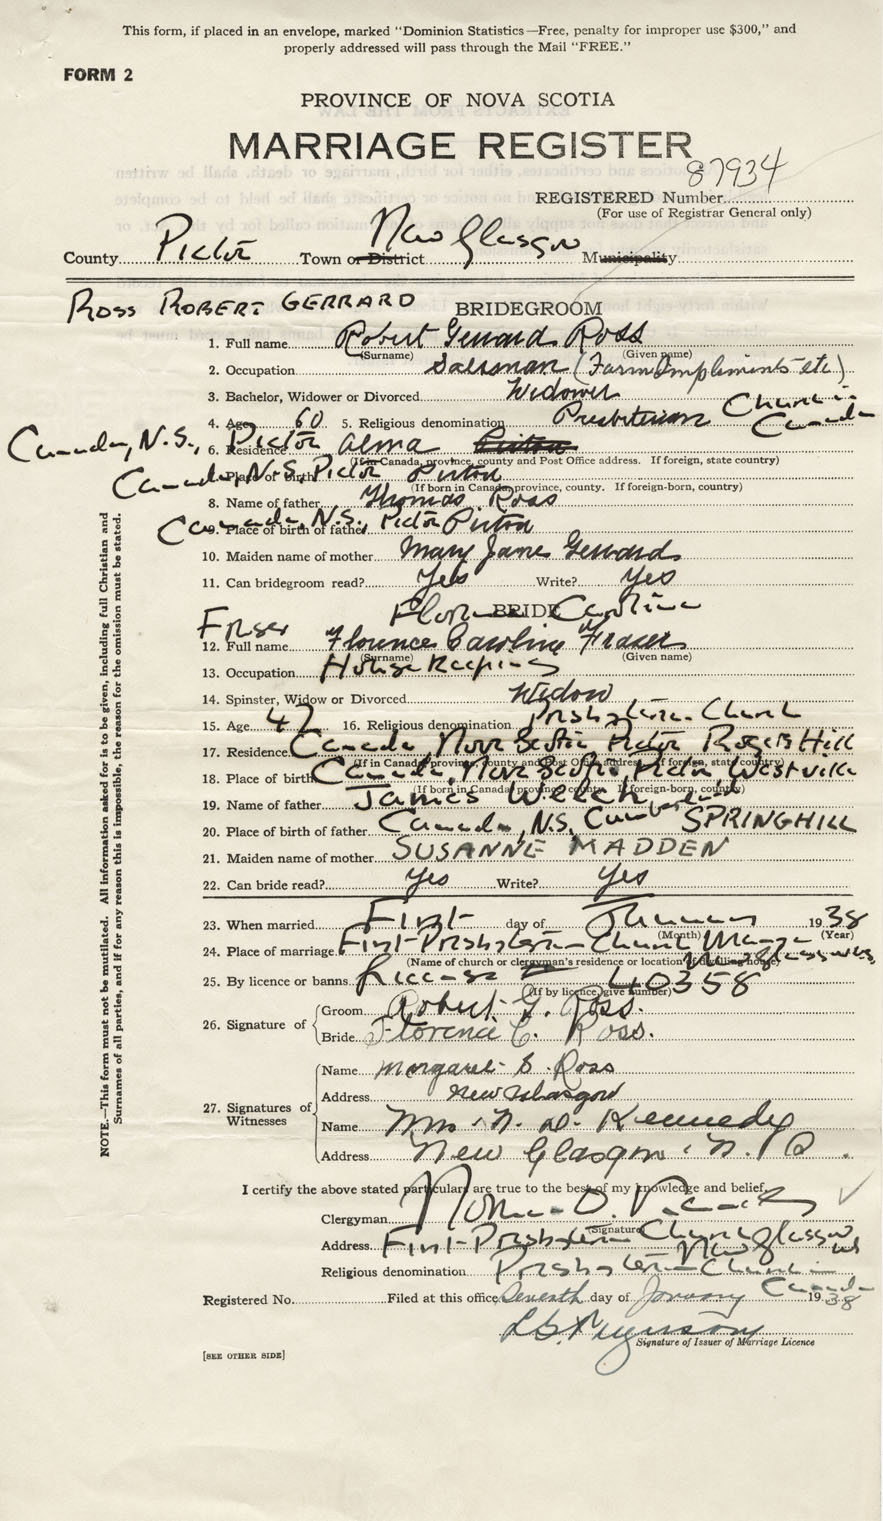 This form, if placed in an envelope, marked "Dominion Statistics—Free, penalty for improper use $300," and
properly addressed will pass through the Mail "FREE."
FORM 2
PROVINCE OF NOVA SCOTIA
MARRIAGE REGISTER
87934
REGISTERED Number
(For use of Registrar General only)
County Pictou Town or District New Glasgow Municipality
ROSS ROBERT GERRARD
BRIDEGROOM
1. Full name Robert Gerrard Ross
(Surname) (Given name)
2. Occupation Salesman (Farm Impliments etc)
3. Bachelor, Widower or Divorced Widower
4. Age 60 5. Religious denomination Presbiterian Church in
Canada
Canada, N.S., Pictou
6. Residence Alma
(If in Canada, province, county and Post Office address. If foreign, state country)
Canada, N.S. Pictou
7. Place of birth Picton
(If born in Canada, province, county. If foreign-born, country)
8. Name of father Thomas Ross
Canada, N.S., Pictou
9. Place of birth of father Picton
10. Maiden name of mother Mary Jane Gerrard
11. Can bridegroom read? Yes Write? Yes
BRIDE
Florence Caroline
Fraser
12. Full name Florence Caroline Fraser
(Surname) (Given name)
13. Occupation House Keeping
14. Spinster, Widow or Divorced Widow
15. Age 47 16. Religious denomination Presbyterian Church
17. Residence Canada, Nova Scotia Pictou Rogers Hill
(If in Canada, province, county and Post Office address. If foreign, state country)
18. Place of birth Canada, Nova Scotia, Pictou, Westville
(If born in Canada, province, county. If foreign-born, country)
19. Name of father James Welch
20. Place of birth of father Canada, N.S. Cumberland SPRINGHILL
21. Maiden name of mother SUSANNE MADDEN
22. Can bride read? Yes Write? Yes
23. When married First day of January 1938
(Month) (Year)
24. Place of marriage First Presbyterian Church Manse
(Name of church or clergyman's residence or location of dwelling house) New Glasgow
25. By licence or banns License 40358
(If by licence, give number)
26. Signature of
Groom Robert G. Ross.
Bride Florence C. Ross.
27. Signatures of Witnesses
Name Margaret S. Ross
Address New Glasgow
Name Mrs. N. D. Kennedy
Address New Glasgow, N.
I certify the above stated particulars are true to the best of my knowledge and belief.
Clergyman Norman D.
(Signature)
Address First Presbyterian Church New Glasgow
NS
Religious denomination Presbyterian Church in
Canada
Registered No. Filed at this office Seventh day of January 1938
Signature of Issuer of Marriage Licence
[SEE OTHER SIDE]
NOTE.—This form must not be mutilated. All information asked for is to be given, including full Christian and
Surnames of all parties, and if for any reason this is impossible, the reason for the omission must be stated.